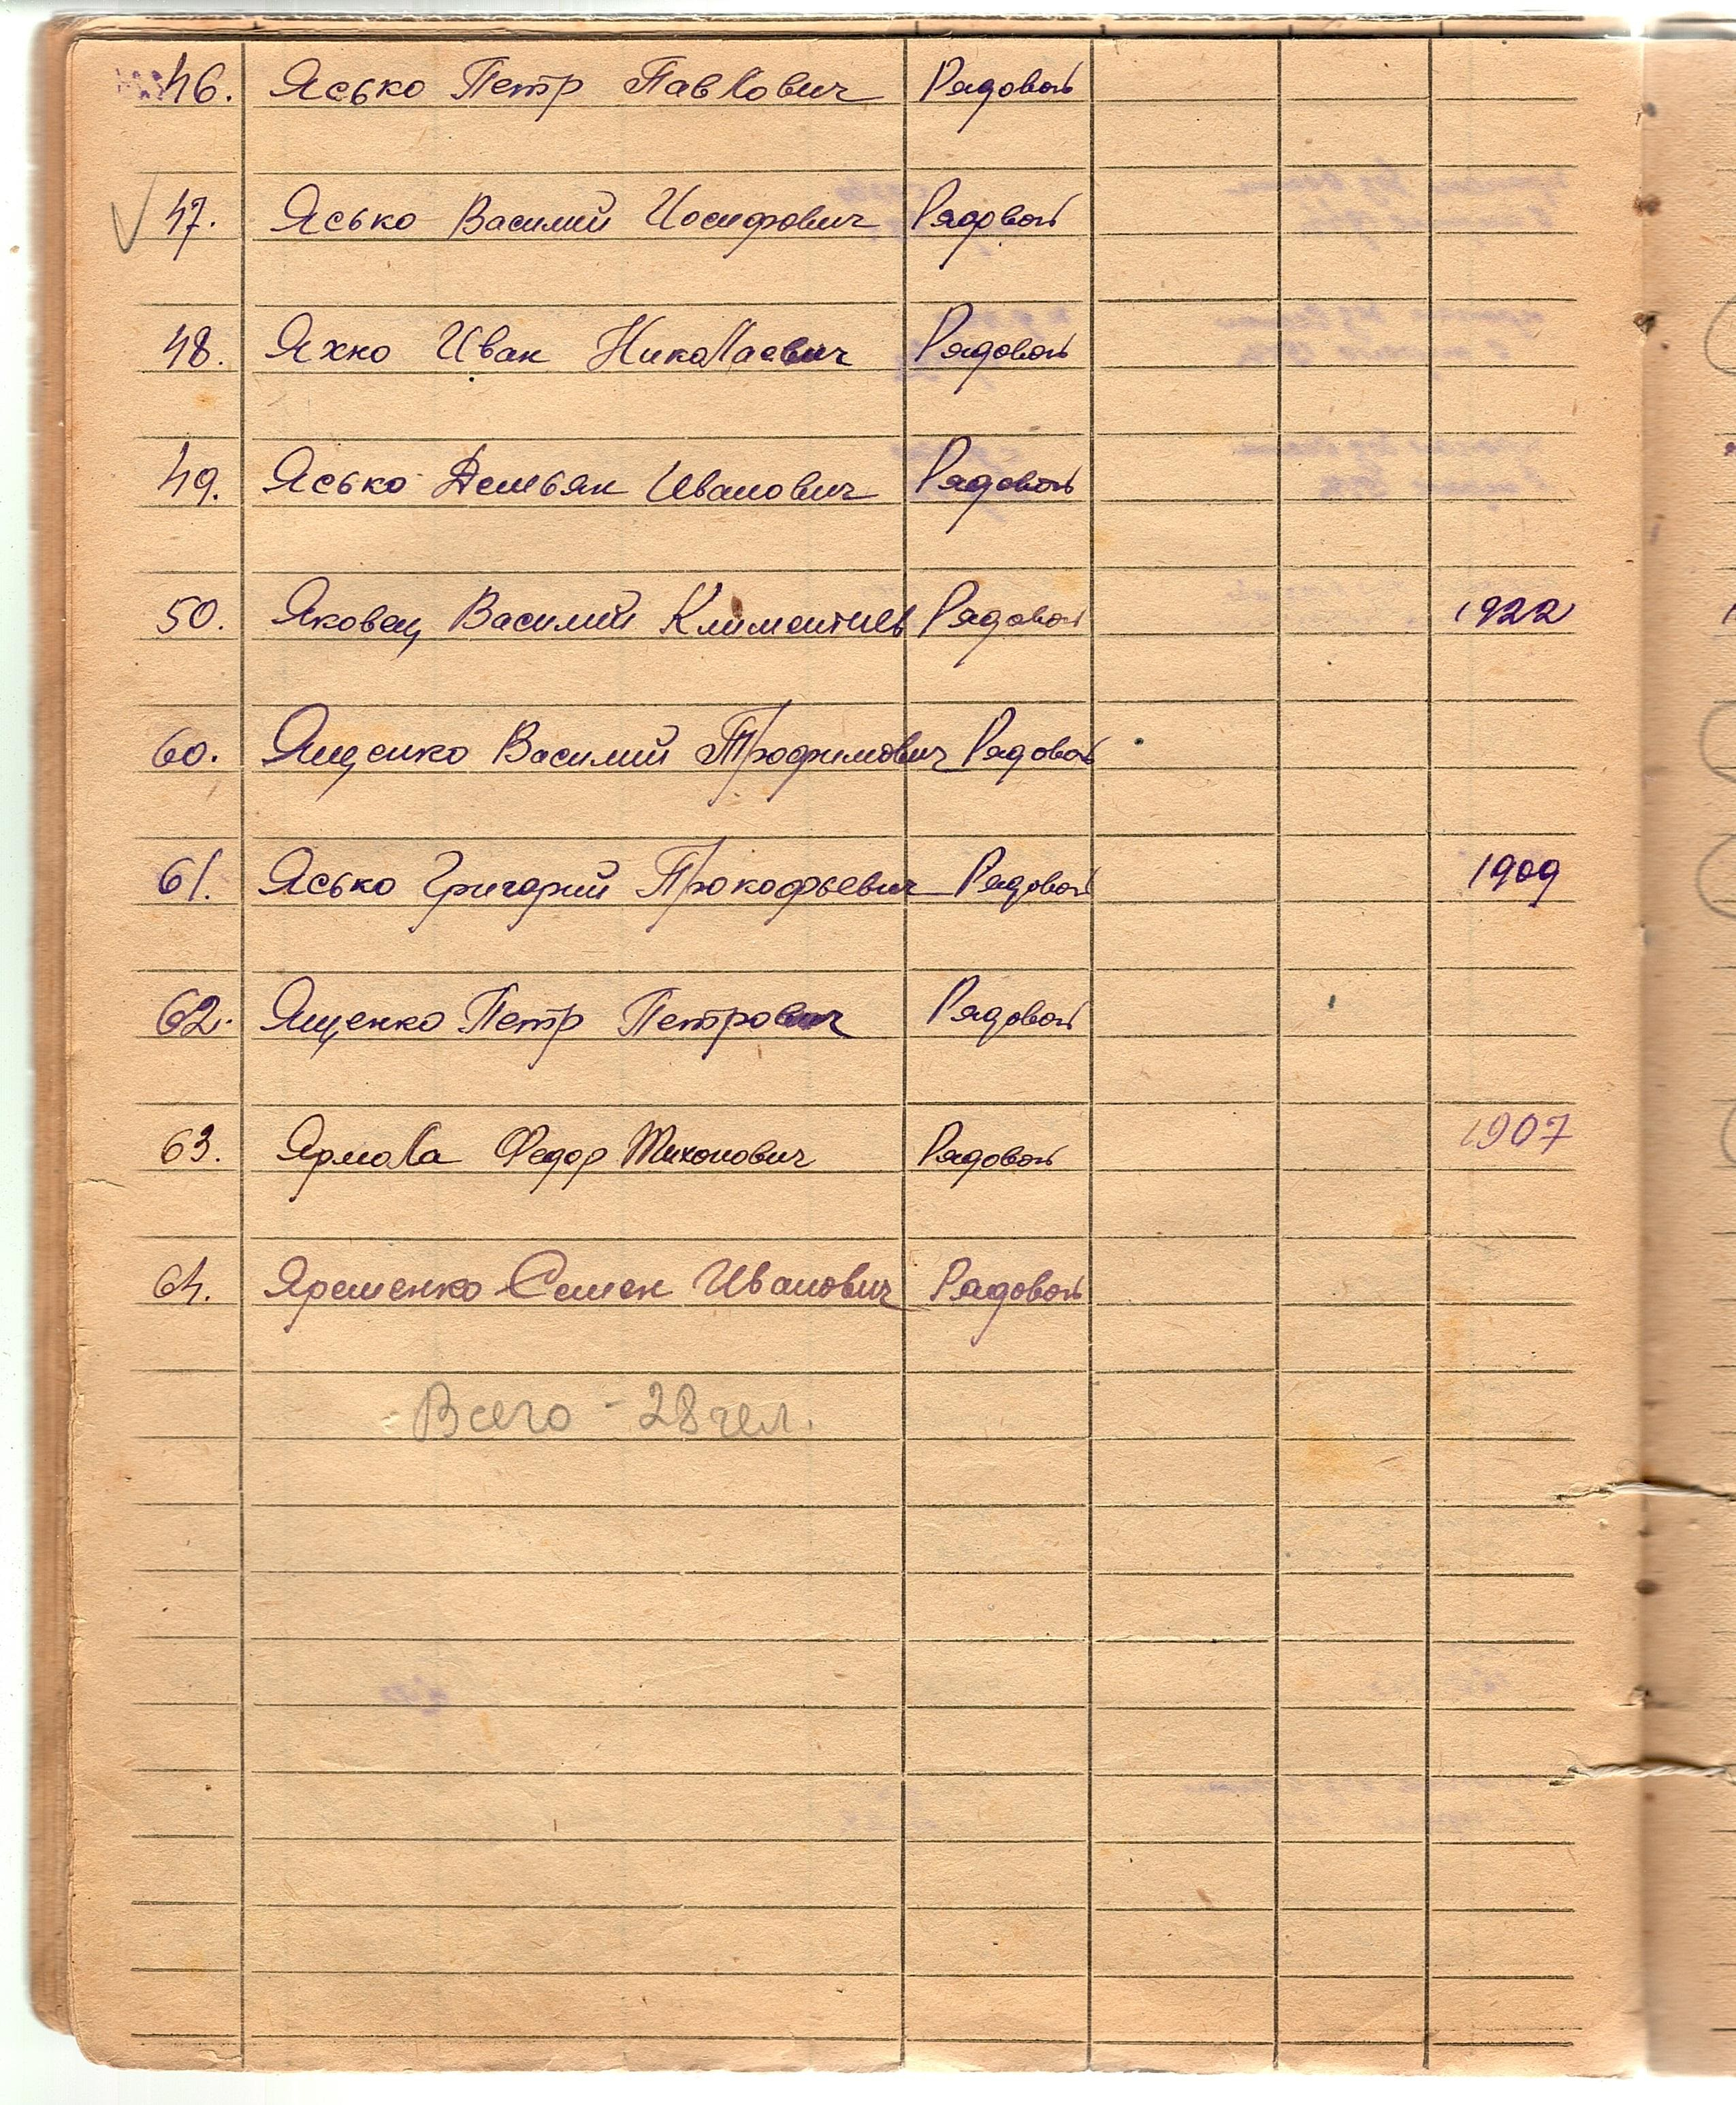 46. Ясько Петр Павлович Рядовой
47. Ясько Василий Иосифович Рядовой
48. Яхно Иван Николаевич Рядовой
49. Ясько Демьян Иванович Рядовой
50. Яковец Василий Климентиев Рядовой 1922
60. Ященко Василий Трофимович Рядовой
61. Ясько Григорий Прокофьевич Рядовой 1909
62. Ященко Петр Петрович Рядовой
63. Ярмола Федор Тихонович Рядовой 1907
64. Яременко Семен Иванович Рядовой
Всего - 28 чел.